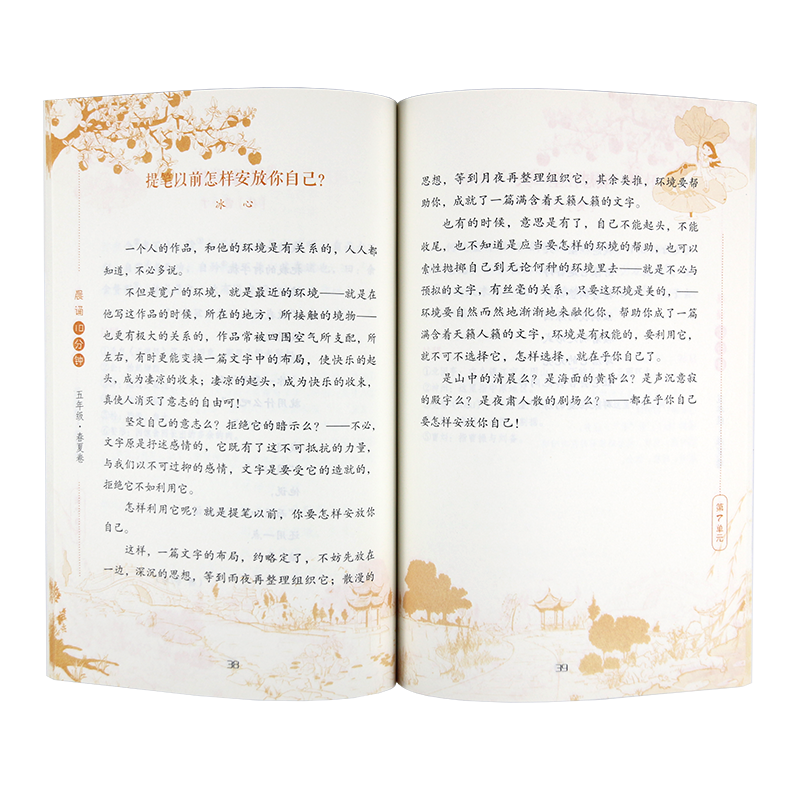 提笔以前怎样安放你自己?
冰 心
一个人的作品，和他的环境是有关系的，人人都
知道，不必多说。
不但是宽广的环境，就是最近的环境——就是在
他写这作品的时候，所在的地方，所接触的境物——
也更有极大的关系，作品常被四围空气所支配，所
左右，有时更能变换一篇文字中的布局，使快乐的起
头，成为凄凉的收束；凄凉的起头，成为快乐的收束，
真使人消灭了意志的自由呵！
坚定自己的意志么？拒绝它的暗示么？——不必，
文字原是抒述感情的，它既有了这不可抵抗的力量，
与我们以不可过抑的感情，文字是要受它的造就的，
拒绝它不如利用它。
怎样利用它呢？就是提笔以前，你要怎样安放你
自己。
这样，一篇文字的布局，约略定了，不妨先放在
一边，深沉的思想，等到雨夜再整理组织它；散漫的
晨诵
10分钟
五年级·春夏卷
38
思想，等到月夜再整理组织它，其余类推，环境要帮
助你，成就了一篇满含着天籁人籁的文字。
也有的时候，意思是有了，自己不能起头，不能
收尾，也不知道是应当要怎样的环境的帮助，也可以
索性抛掷自己到无论何种的环境里去——就是不必与
预拟的文字，有丝毫的关系，只要这环境是美的，——
环境要自然而然地渐渐地来融化你，帮助你成了一篇
满含着天籁人籁的文字，环境是有权能的，要利用它，
就不可不选择它，怎样选择，就在乎你自己了。
是山中的清晨么？是海面的黄昏么？是声沉意寂
的殿宇么？是夜肃人散的剧场么？——都在乎你自己
要怎样安放你自己！
第7单元
39